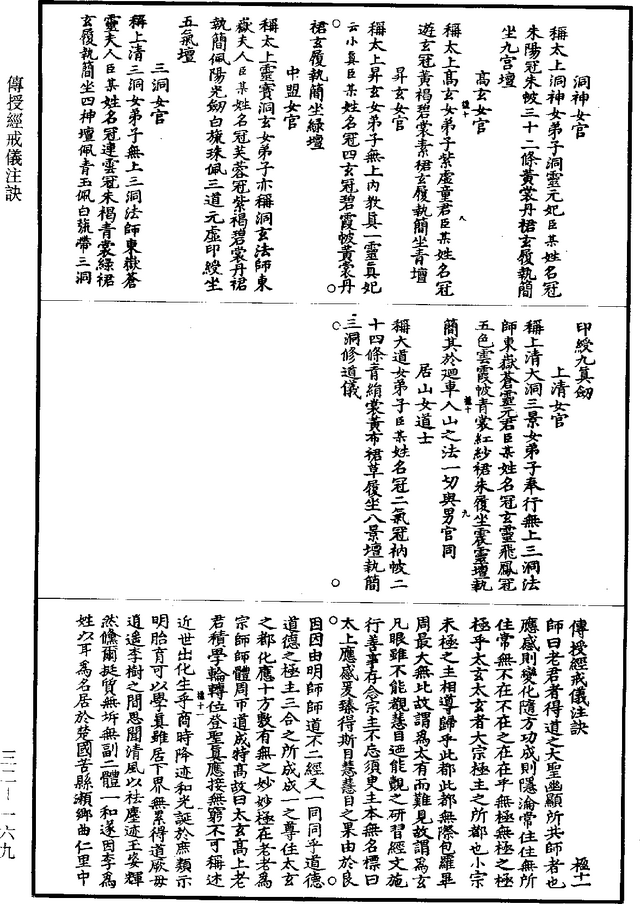 洞神女官
稱太上洞神女弟子洞靈元妃臣某姓名冠
朱陽冠朱帔三十二條黃裳丹裙玄履執簡
坐九宮壇
高玄女官
稱太上高玄女弟子紫虛童君臣某姓名冠
遊玄冠黃褐碧裳素裙玄履執簡坐青壇
昇玄女官
稱太上昇玄女弟子無上內教真一靈真妃
云小真臣某姓名冠四玄冠碧霞帔黃裳丹
裙玄履執簡坐綠壇
中盟女官
稱太上靈寶洞玄女弟子亦稱洞玄法師東
嶽夫人臣某姓名冠芙蓉冠紫褐碧裳丹裙
執簡佩陽光劒白旄珠佩三道元虛印綬坐
五氣壇
三洞女官
稱上清三洞女弟子無上三洞法師東嶽蒼
靈夫人臣某姓名冠連雲冠朱褐青裳綠裙
玄履執簡坐四神壇佩青玉佩白旄帶三洞
印綬九真劒
上清女官
稱上清大洞三景女弟子奉行無上三洞法
師東嶽蒼靈元君臣某姓名冠玄靈飛鳳冠
五色雲霞帔青裳紅紗裙朱履坐震靈壇執
簡其於迴車入山之法一切與男官同
居山女道士
稱大道女弟子臣某姓名冠二氣冠衲帔二
十四條青絹裳黃布裙草履坐八景壇執簡
三洞修道儀
傳授經戒儀注訣 極十一
師曰老君者得道之大聖幽顯所共師者也
應感則變化隨方功成則隱淪常住住無所
住常無不在不在之在在乎無極無極之極
極乎太玄太玄者大宗極主之所都也小宗
未極之主相導歸乎此都此都無際包羅畢
周最大無比故謂為太有而難見故謂為玄
凡眼雖不能覩慧目迺能觀之研習經文施
行善事存念宗主不忘須臾主本無名標曰
太上應感爰臻得斯目慧慧目之果由於良
因因由明師師道不二經又一同同乎道德
道德之極主三合之所成成一之尊住太玄
之都化應十方數有無之妙妙極在老老為
宗師師體周帀道成特高故曰太玄高上老
君積學輪轉位登聖真應接無窮不可稱述
近世出化生乎商時降迹和光誕於庶類示
明胎育可以學真雖居下界無累得道厥母
逍遙李樹之間思聞清風以袪塵迹玉姿輝
然儵爾挺質無坼無副二體一和遂因李為
姓以耳為名居於楚國苦縣瀨鄉曲仁里中
傳授經戒儀注訣
三二－一六九